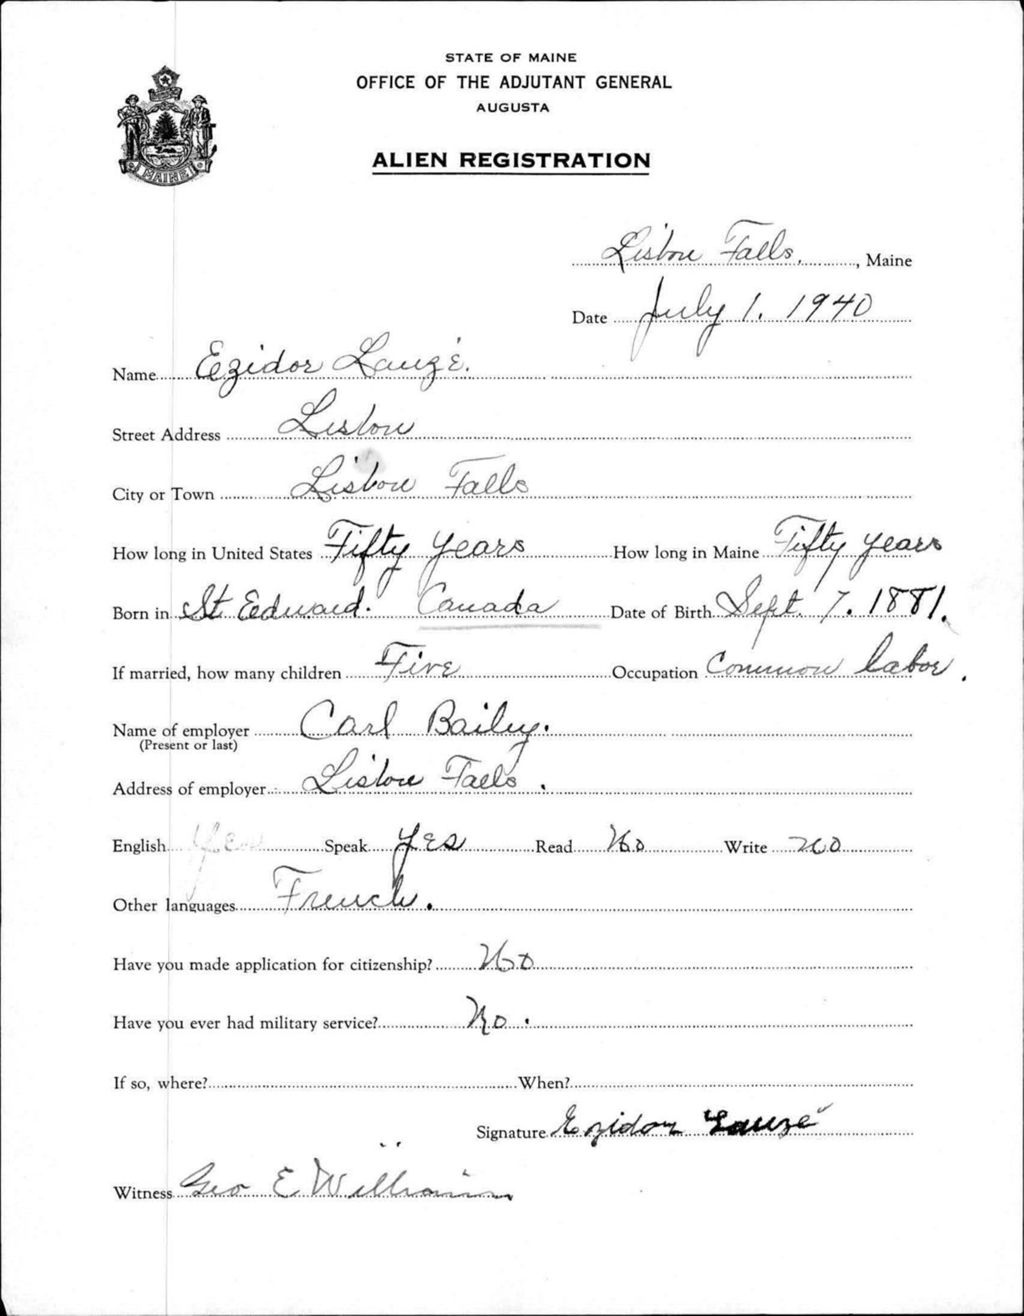 STATE OF MAINE
OFFICE OF THE ADJUTANT GENERAL
AUGUSTA
MAINE
ALIEN REGISTRATION
Lisbon Falls, Maine
Date July 1. 1940
Name Ezidor Lauzé.
Street Address Lisbon
City or Town Lisbon Falls
How long in United States Fifty years How long in Maine Fifty years
Born in St. Edward. Canada Date of Birth Sept. 7. 1881.
If married, how many children Five Occupation Common labor.
Name of employer Carl Bailey.
(Present or last)
Address of employer Lisbon Falls.
English Yes Speak Yes Read No Write no
Other languages French.
Have you made application for citizenship? No
Have you ever had military service? No.
If so, where? When?
Signature Ezidor Lauzé
Witness Geo E Williams